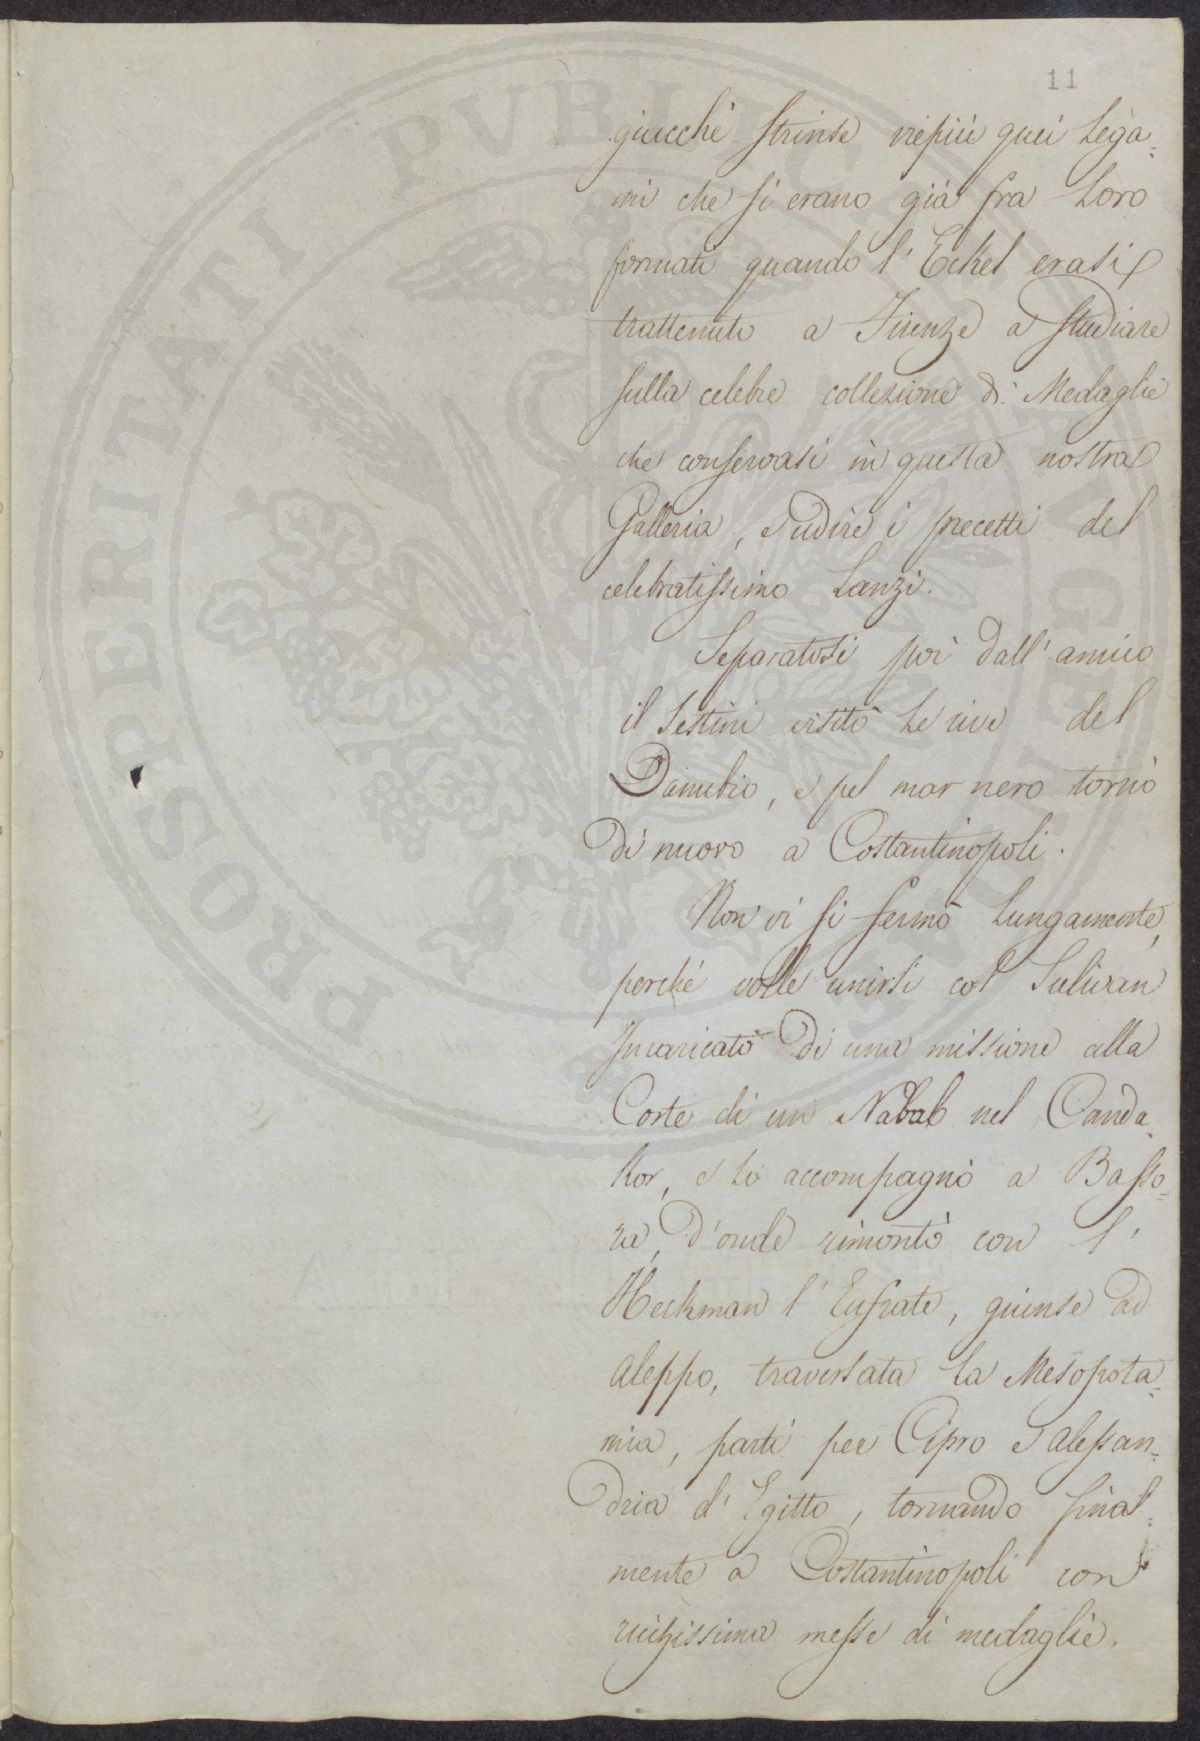 11
giacchè strinse viepiù quei lega=
mi che si erano già fra loro
formati quando l'Eckel erasi
trattenuto a Firenze a studiare
sulla celebre collezione di Medaglie
che conservasi in questa nostra
Galleria, e udire i precetti del
celebratissimo Lanzi.
Separatosi poi dall'amico
il Sestini visitò le rive del
Danubio, e pel mar nero tornò
di nuovo a Costantinopoli.
Non vi si fermò lungamente,
perchè volle unirsi col Sulivan
Incaricato di una missione alla
Corte di un Nabab nel Canda=
kor, e lo accompagnò a Basso=
ra, d'onde rimontò con l'
Heckman l'Eufrate, giunse ad
Aleppo, traversata la Mesopota=
mia, partì per Cipro e Alessan=
dria d'Egitto, tornando final=
mente a Costantinopoli con
ricchissima messe di medaglie.
PROSPERITATI PVBLICAE AVGENDAE